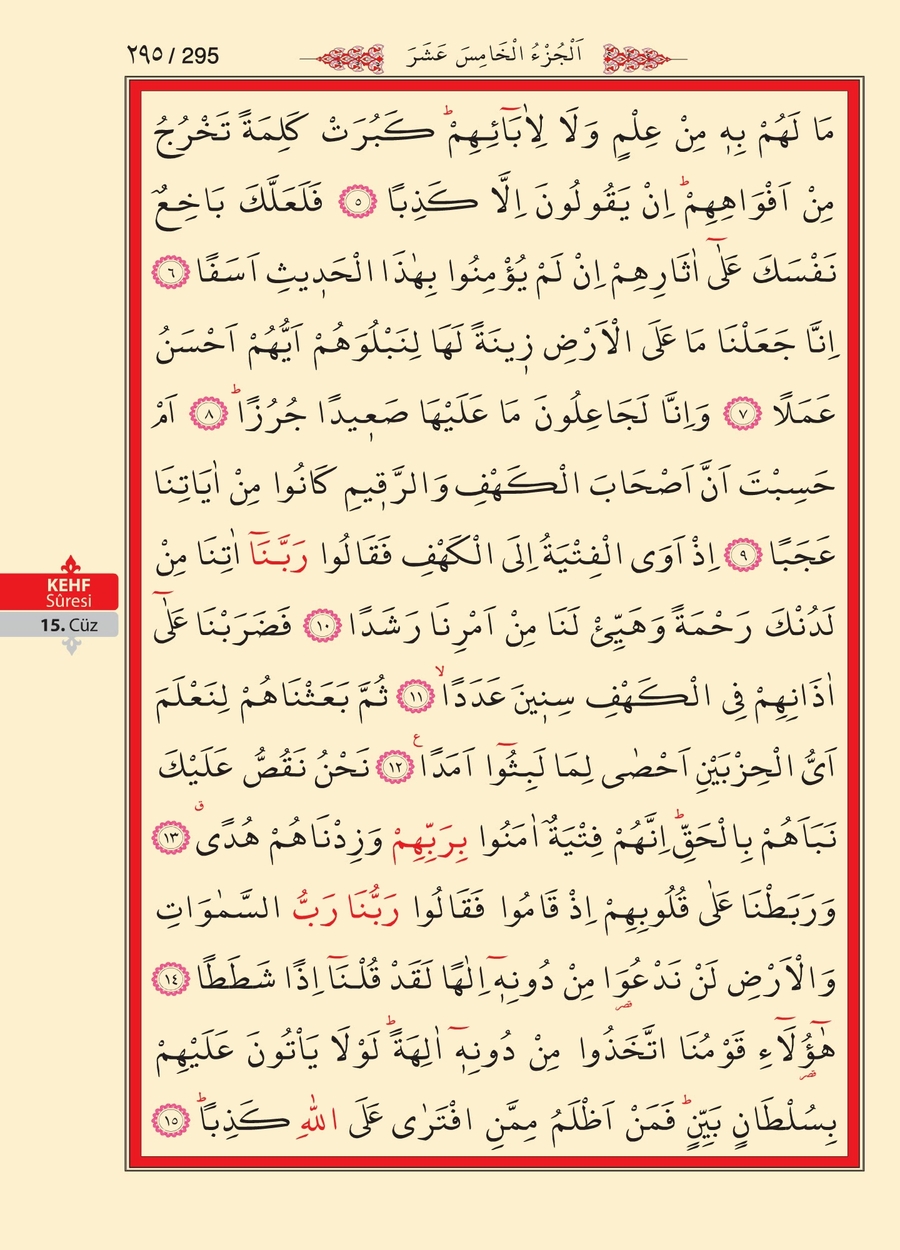 ٢٩٥ / 295
اَلْجُزْءُ الْخَامِسَ عَشَرَ
مَا لَهُمْ بِه۪ مِنْ عِلْمٍ وَلَا لِاٰبَٓائِهِمْۜ كَبُرَتْ كَلِمَةً تَخْرُجُ
مِنْ اَفْوَاهِهِمْۜ اِنْ يَقُولُونَ اِلَّا كَذِبًا ٥ فَلَعَلَّكَ بَاخِعٌ
نَفْسَكَ عَلٰٓى اٰثَارِهِمْ اِنْ لَمْ يُؤْمِنُوا بِهٰذَا الْحَد۪يثِ اَسَفًا ٦
اِنَّا جَعَلْنَا مَا عَلَى الْاَرْضِ ز۪ينَةً لَهَا لِنَبْلُوَهُمْ اَيُّهُمْ اَحْسَنُ
عَمَلًا ٧ وَاِنَّا لَجَاعِلُونَ مَا عَلَيْهَا صَع۪يدًا جُرُزًاۜ ٨ اَمْ
حَسِبْتَ اَنَّ اَصْحَابَ الْكَهْفِ وَالرَّق۪يمِ كَانُوا مِنْ اٰيَاتِنَا
عَجَبًا ٩ اِذْ اَوَى الْفِتْيَةُ اِلَى الْكَهْفِ فَقَالُوا رَبَّنَٓا اٰتِنَا مِنْ
لَدُنْكَ رَحْمَةً وَهَيِّئْ لَنَا مِنْ اَمْرِنَا رَشَدًا ١٠ فَضَرَبْنَا عَلٰٓى
اٰذَانِهِمْ فِي الْكَهْفِ سِن۪ينَ عَدَدًاۙ ١١ ثُمَّ بَعَثْنَاهُمْ لِنَعْلَمَ
اَيُّ الْحِزْبَيْنِ اَحْصٰى لِمَا لَبِثُٓوا اَمَدًا ع ١٢ نَحْنُ نَقُصُّ عَلَيْكَ
نَبَاَهُمْ بِالْحَقِّۜ اِنَّهُمْ فِتْيَةٌ اٰمَنُوا بِرَبِّهِمْ وَزِدْنَاهُمْ هُدًى ق ١٣
وَرَبَطْنَا عَلٰى قُلُوبِهِمْ اِذْ قَامُوا فَقَالُوا رَبُّنَا رَبُّ السَّمٰوَاتِ
وَالْاَرْضِ لَنْ نَدْعُوَ۬ا مِنْ دُونِه۪ٓ اِلٰهًا لَقَدْ قُلْنَٓا اِذًا شَطَطًا ١٤
قصر
هٰٓؤُ۬لَٓاءِ قَوْمُنَا اتَّخَذُوا مِنْ دُونِه۪ٓ اٰلِهَةًۜ لَوْلَا يَأْتُونَ عَلَيْهِمْ
قصر
بِسُلْطَانٍ بَيِّنٍۜ فَمَنْ اَظْلَمُ مِمَّنِ افْتَرٰى عَلَى اللّٰهِ كَذِبًاۜ ١٥
KEHF
Sûresi
15. Cüz